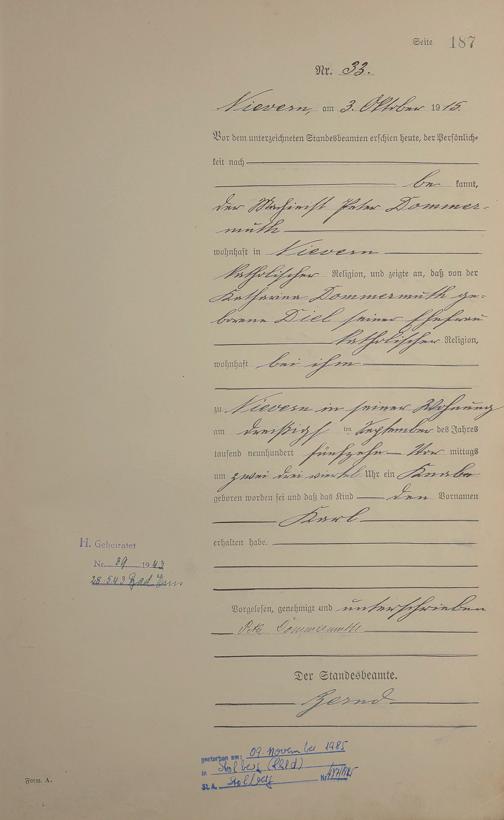 Seite 187
Nr. 33.
Nievern, am 3. Oktober 1915.
Vor dem unterzeichneten Standesbeamten erschien heute, der Persönlich-
keit nach
be kannt,
der Maschinist Peter Dommer-
muth
wohnhaft in Nievern
katholischer Religion, und zeigte an, daß von der
Katharina Dommermuth ge-
borene Diel seiner Ehefrau
katholischer Religion,
wohnhaft bei ihm
zu Nievern in seiner Wohnung
am dreißigst im September des Jahres
tausend neunhundert fünfzehn Vor mittags
um zwei drei viertel Uhr ein Knabe
geboren worden sei und daß das Kind den Vornamen
Karl
erhalten habe.
H. Geheiratet
Nr. 29 1943
Bad Ems
Vorgelesen, genehmigt und unterschrieben
Dommermuth
Der Standesbeamte.
gestorben am: 09. November 1985
in Stolberg (Rhld)
St.A. Stolberg Nr.
Form. A.